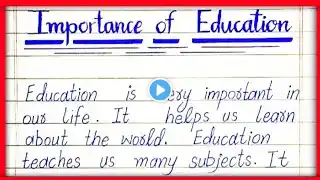 Importance of Education
Education is very important in
our life. It helps us learn
about the world. Education
teaches us many subjects. It